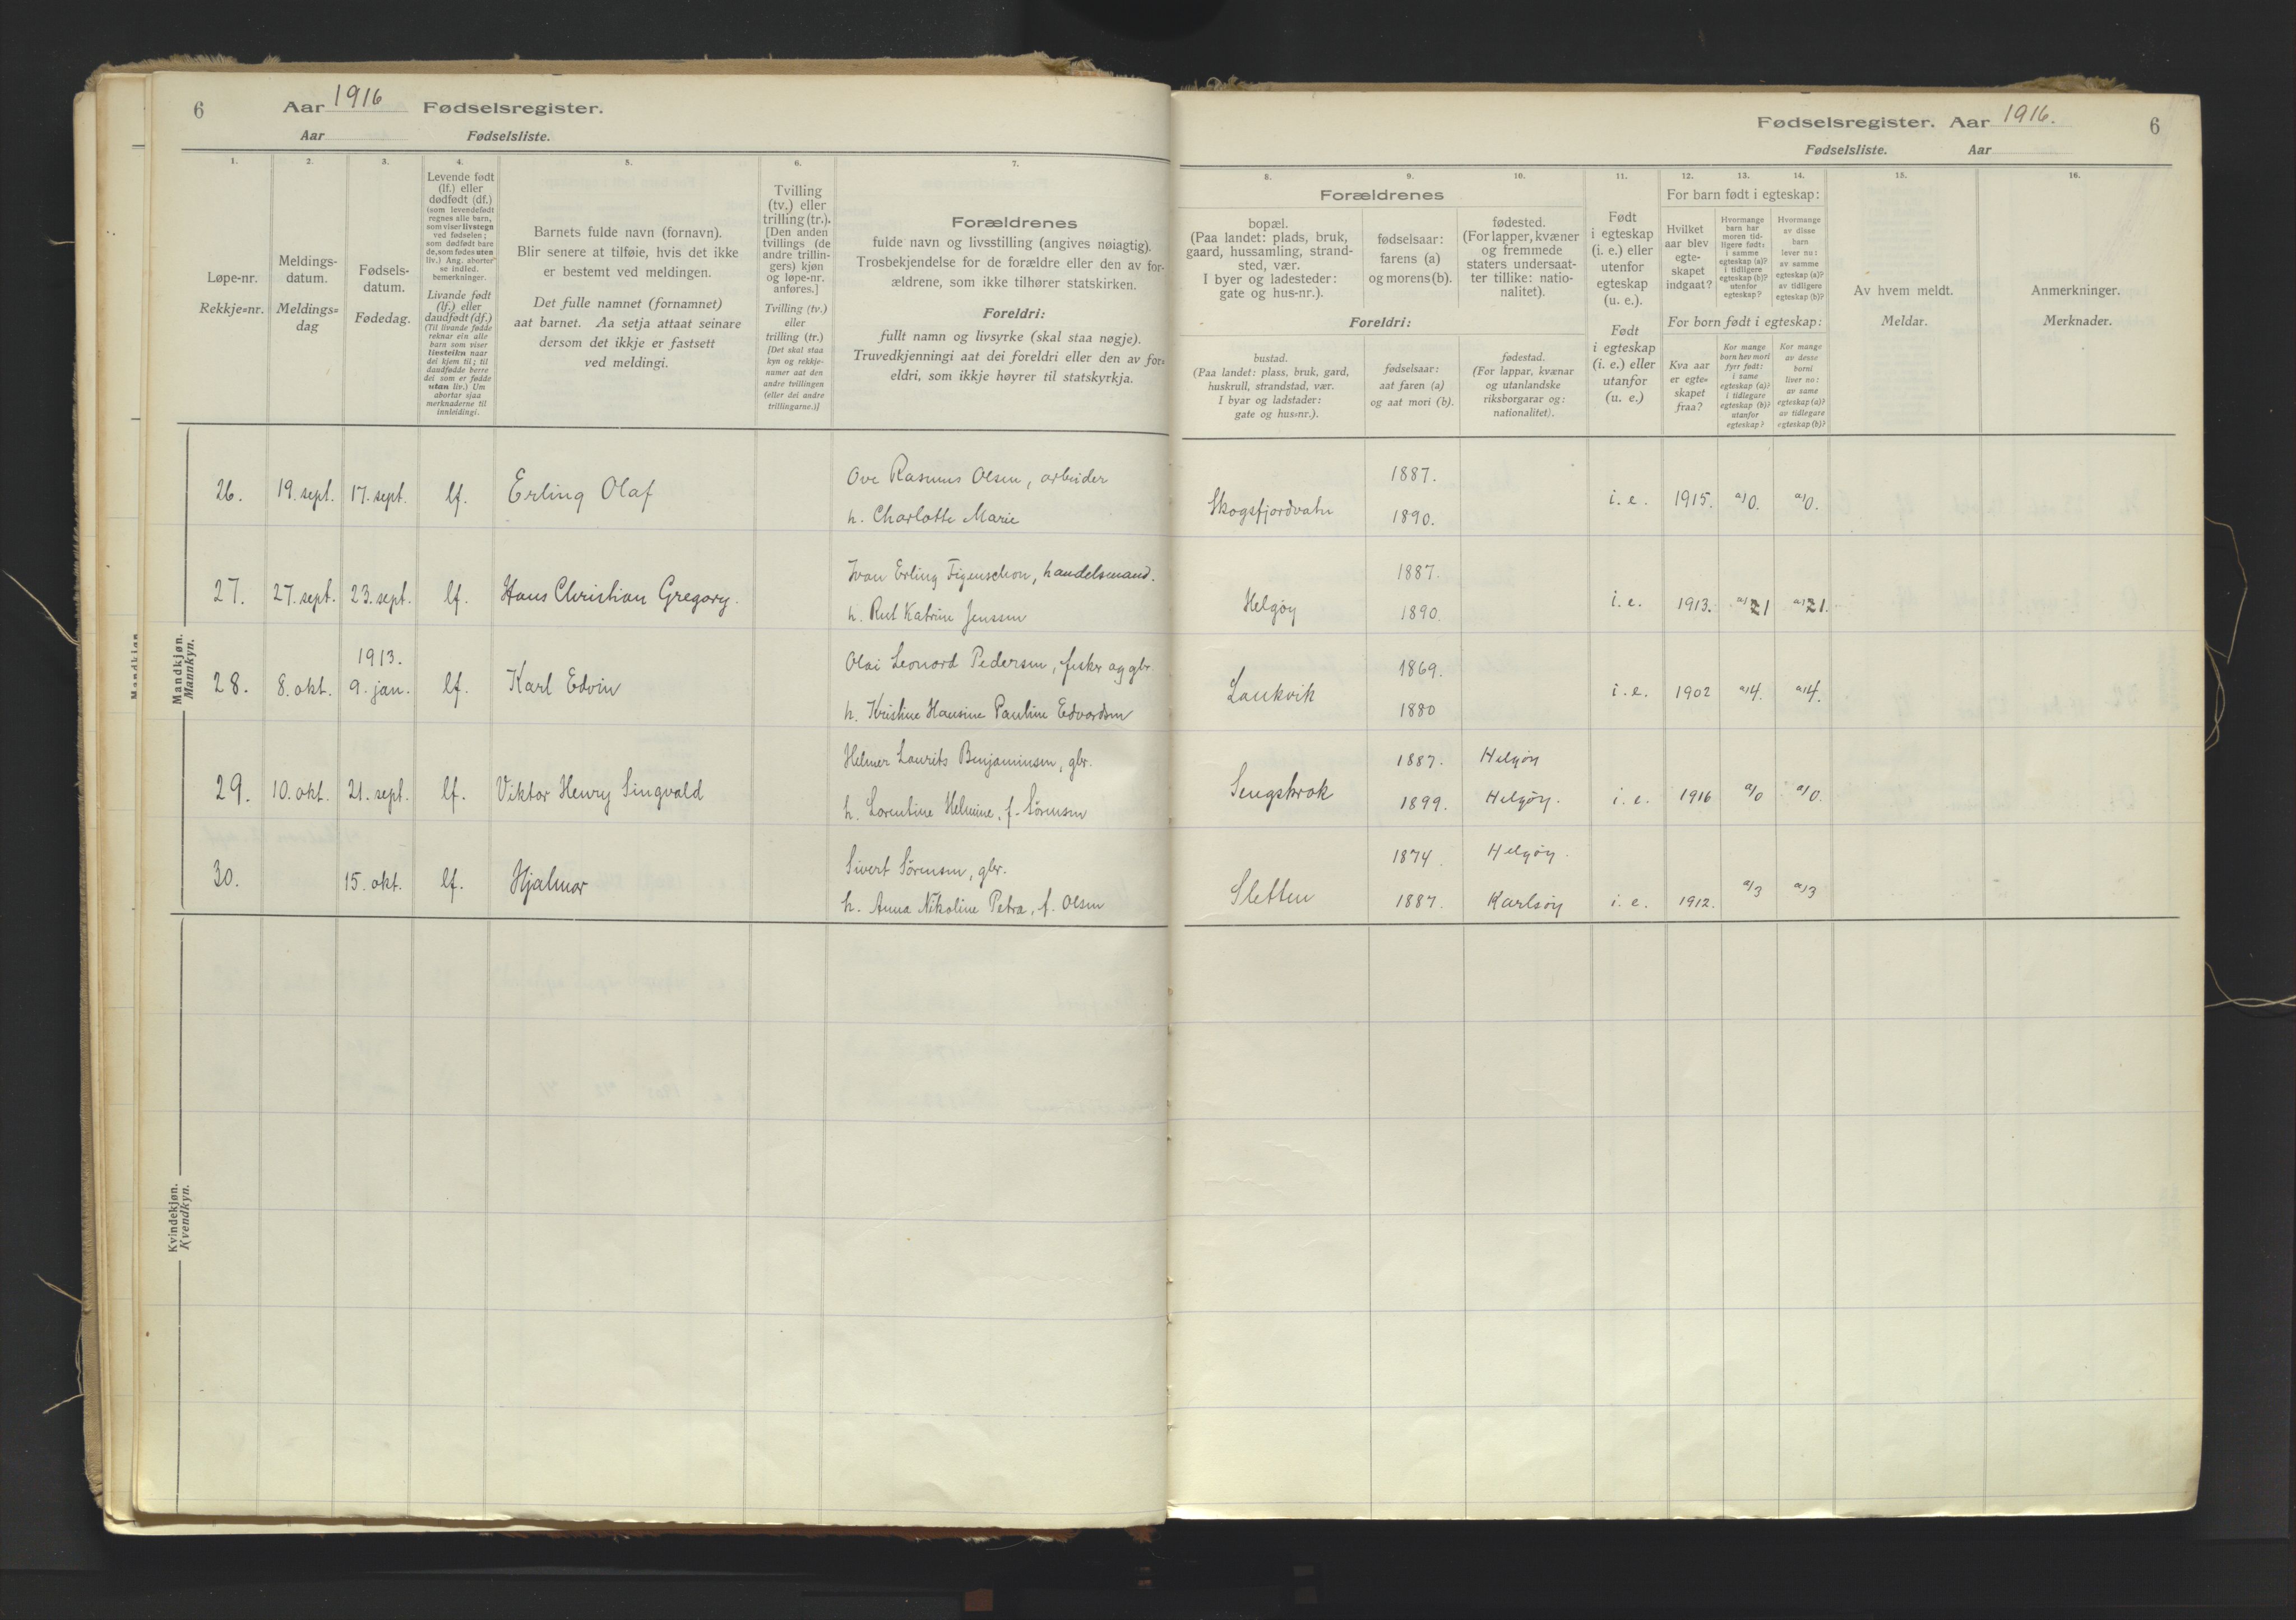 6 Aar 1916 Fødselsregister.
Aar Fødselsliste.
1. 2. 3. 4. 5. 6. 7.
Løpe-nr.
Rekkje=nr.
Meldings-
datum.
Meldings=
dag
Fødsels-
datum.
Fødedag.
Levende født
(lf.) eller
dødfødt (df.)
(som levendefødt
regnes alle barn,
som viser livstegn
ved fødselen;
som dødfødt bare
de, som fødes uten
liv.) Ang. aborter
se indled.
bemerkninger.
Livande født
(lf.) eller
daudfødt (df.)
(Til livande fødde
reknar ein alle
barn som viser
livsteikn naar
dei kjem til; til
daudfødde berre
dei som er fødde
utan liv.) Um
abortar sjaa
merknaderne til
innleidingi.
Barnets fulde navn (fornavn).
Blir senere at tilføie, hvis det ikke
er bestemt ved meldingen.
Det fulle namnet (fornamnet)
aat barnet. Aa setja attaat seinare
dersom det ikkje er fastsett
ved meldingi.
Tvilling
(tv.) eller
trilling (tr.).
[Den anden
tvillings (de
andre trillin-
gers) kjøn
og løpe-nr.
anføres.]
Tvilling (tv.)
eller
trilling (tr.)
[Det skal staa
kyn og rekkje-
numer aat den
andre tvillingen
(eller dei andre
trillingarne.)]
Forældrenes
fulde navn og livsstilling (angives nøiagtig).
Trosbekjendelse for de forældre eller den av for-
ældrene, som ikke tilhører statskirken.
Foreldri:
fullt namn og livsyrke (skal staa nøgje).
Truvedkjenningi aat dei foreldri eller den av for=
eldri, som ikkje høyrer til statskyrkja.
Mandkjøn.
Mannkyn.
26. 19. sept. 17. sept. lf. Erling Olaf
Ove Rasmus Olsen, arbeider
h. Charlotte Marie
27. 27. sept. 23. sept. lf. Hans Christian Gregory.
Ivan Erling Figenschou, handelsmand.
h. Rut Katrine Jenssen
28. 8. okt. 1913.
9. jan. lf. Karl Edvin
Olai Leonard Pedersen, fisker og gbr.
h. Kristine Hansine Pauline Edvardsen
29. 10. okt. 21. sept. lf. Viktor Henry Singvald
Helmer Laurits Benjaminsen, gbr.
h. Lorentine Helmine, f. Sørensen
30. 15. okt. lf. Hjalmar
Sivert Sørensen, gbr.
h. Anna Nikoline Petra, f. Olsen
Kvindekjøn.
Kvendkyn.
Fødselsregister. Aar 1916. 6
Fødselsliste. Aar
8. 9. 10. 11. 12. 13. 14. 15. 16.
Forældrenes
bopæl.
(Paa landet: plads, bruk,
gaard, hussamling, strand-
sted, vær.
I byer og ladesteder:
gate og hus-nr.).
fødselsaar:
farens (a)
og morens (b).
fødested.
(For lapper, kvæner
og fremmede
staters undersaat-
ter tillike: natio-
nalitet).
Foreldri:
bustad.
(Paa landet: plass, bruk, gard,
huskrull, strandstad, vær.
I byar og ladstader:
gate og hus=nr.).
fødselsaar:
aat faren (a)
og aat mori (b).
fødestad.
(For lappar, kvænar
og utanlandske
riksborgarar og:
nationalitet).
Født
i egteskap
(i. e.) eller
utenfor
egteskap
(u. e.).
Født
i egteskap
(i. e.) eller
utanfor
(u. e.)
For barn født i egteskap:
Hvilket
aar blev
egte-
skapet
indgaat?
Hvormange
barn har
moren tid-
ligere født:
i samme
egteskap (a)?
i tidligere
egteskap (b)?
utenfor
egteskap?
Hvormange
av disse
barn
lever nu:
av samme
egteskap (a)?
av tidligere
egteskap (b)?
For born født i egteskap:
Kva aar
er egte=
skapet
fraa?
Kor mange
born hev mori
fyrr født:
i same
egteskap (a)?
i tidlegare
egteskap (b)?
utanfor
egteskap?
Kor mange
av desse
borni
liver no:
av same
egteskap (a)?
av tidlegare
egteskap (b)?
Av hvem meldt.
Meldar.
Anmerkninger.
Merknader.
Skogsfjordvatn 1887. 1890. i. e. 1915. a/0. a/0.
Helgøy 1887. 1890. i. e. 1913. a/1 a/1.
Laukvik 1869. 1880 i. e. 1902 a/4. a/4.
Sengskrok 1887. Helgøy 1899. Helgøy. i. e. 1916 a/0 a/0.
Sletten 1874. Helgøy. 1887. Karlsøy i. e. 1912. a/3 a/3